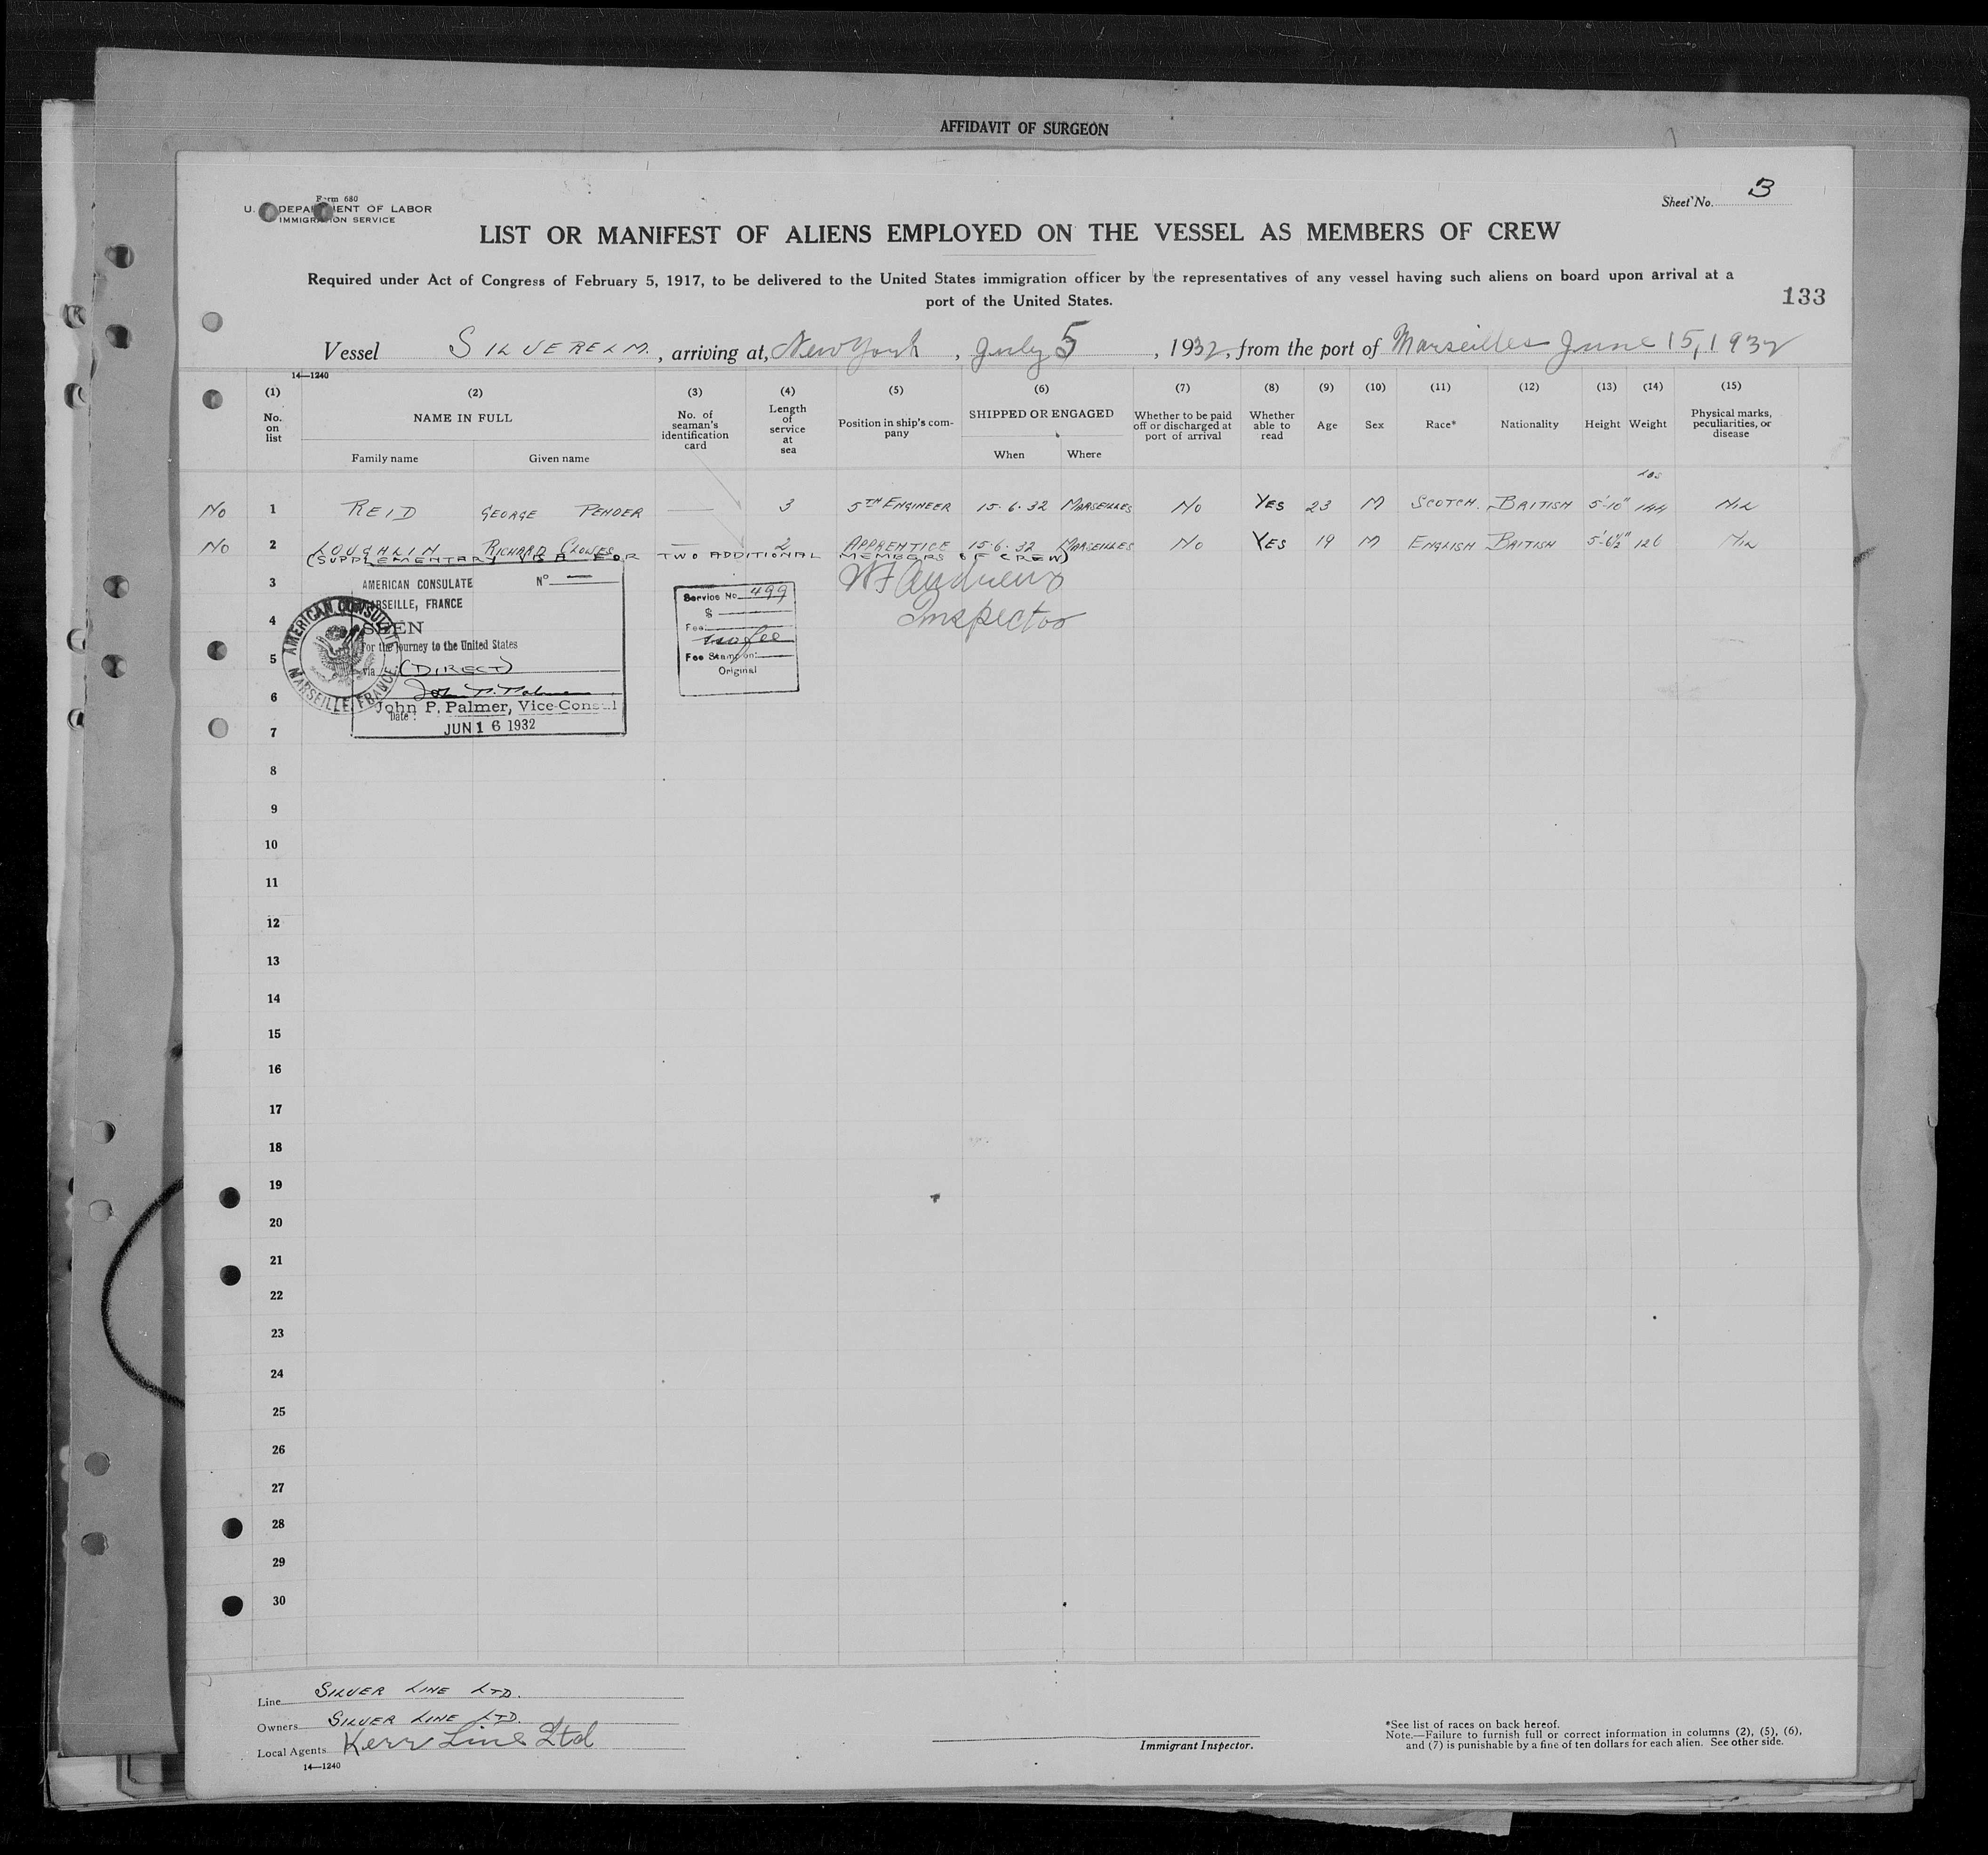 AFFIDAVIT OF SURGEON
Form 680
U. DEPARTMENT OF LABOR
IMMIGRATION SERVICE
Sheet No. 3
LIST OR MANIFEST OF ALIENS EMPLOYED ON THE VESSEL AS MEMBERS OF CREW
Required under Act of Congress of February 5, 1917, to be delivered to the United States immigration officer by the representatives of any vessel having such aliens on board upon arrival at a
port of the United States.
133
Vessel SILVERELM, arriving at, New York, July 5, 1932, from the port of Marseilles June 15, 1932
14—1240
(1) (2) (3) (4) (5) (6) (7) (8) (9) (10) (11) (12) (13) (14) (15)
No. on list
NAME IN FULL
Family name Given name
No. of seaman's identification card
Length of service at sea
Position in ship's company
SHIPPED OR ENGAGED
When Where
Whether to be paid off or discharged at port of arrival
Whether able to read
Age Sex Race* Nationality Height Weight
Physical marks, peculiarities, or disease
LBS
No 1 REID GEORGE PENDER — 3 5TH ENGINEER 15.6.32 MARSEILLES No YES 23 M SCOTCH. BRITISH 5'-10" 144 NIL
No 2 LOUGHLIN RICHARD CLOWES — 2 APPRENTICE 15.6.32 MARSEILLES No YES 19 M ENGLISH BRITISH 5'-6½" 126 NIL
(SUPPLEMENTARY VISA FOR TWO ADDITIONAL MEMBERS OF CREW)
3
4
5
6
7
AMERICAN CONSULATE N° —
MARSEILLE, FRANCE
SEEN
For the journey to the United States
via (DIRECT)
John P. Palmer
John P. Palmer, Vice-Consul
Date :
JUN 16 1932
AMERICAN CONSULATE
MARSEILLE, FRANCE
Service No 499
$
Fee
no fee
Fee Stamp on:
Original
W F Andrews
Inspector
8
9
10
11
12
13
14
15
16
17
18
19
20
21
22
23
24
25
26
27
28
29
30
Line SILVER LINE LTD.
Owners SILVER LINE LTD.
Local Agents Kerr Line Ltd
14—1240
Immigrant Inspector.
*See list of races on back hereof.
Note.—Failure to furnish full or correct information in columns (2), (5), (6),
and (7) is punishable by a fine of ten dollars for each alien. See other side.